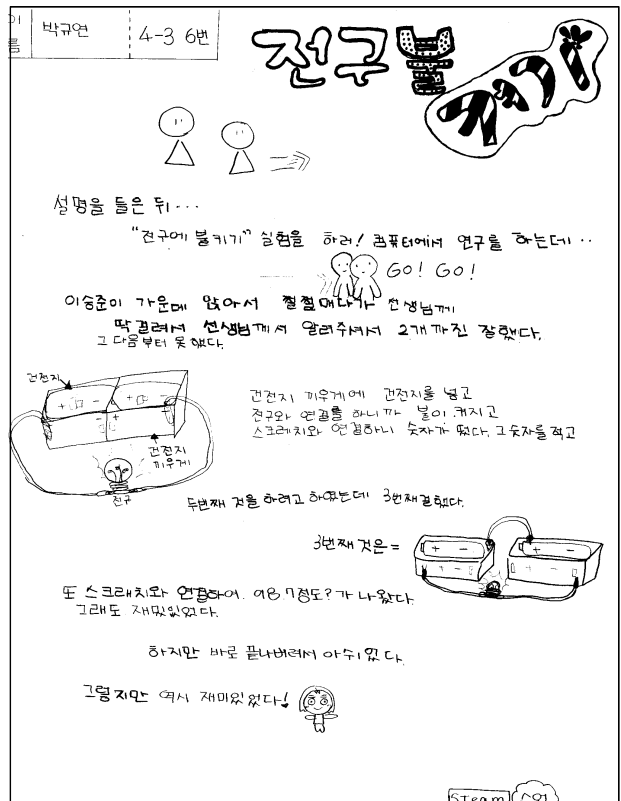 이름 박규연 4-3 6번
전구 불 켜기
설명을 들은 뒤...
"전구에 불키기" 실험을 하러! 컴퓨터에서 연구를 하는데..
GO! GO!
이승준이 가운데 앉아서 쩔쩔매다가 선생님께
딱걸려서 선생님께서 알려주셔서 2개까진 잘했다.
그 다음부터 못 했다.
건전지
건전지 끼우게에 건전지를 넣고
전구와 연결을 하니까 불이 켜지고
스크래치와 연결하니 숫자가 떴다. 그 숫자를 적고
건전지
끼우게
전구
두번째 것을 하려고 하였는데 3번째걸했다.
3번째 것은=
또 스크래치와 연결하여 정도?가 나왔다.
그래도 재밌있었다.
하지만 바로 끝나버려서 아쉬웠다.
그렇지만 역시 재미있었다!
STeam